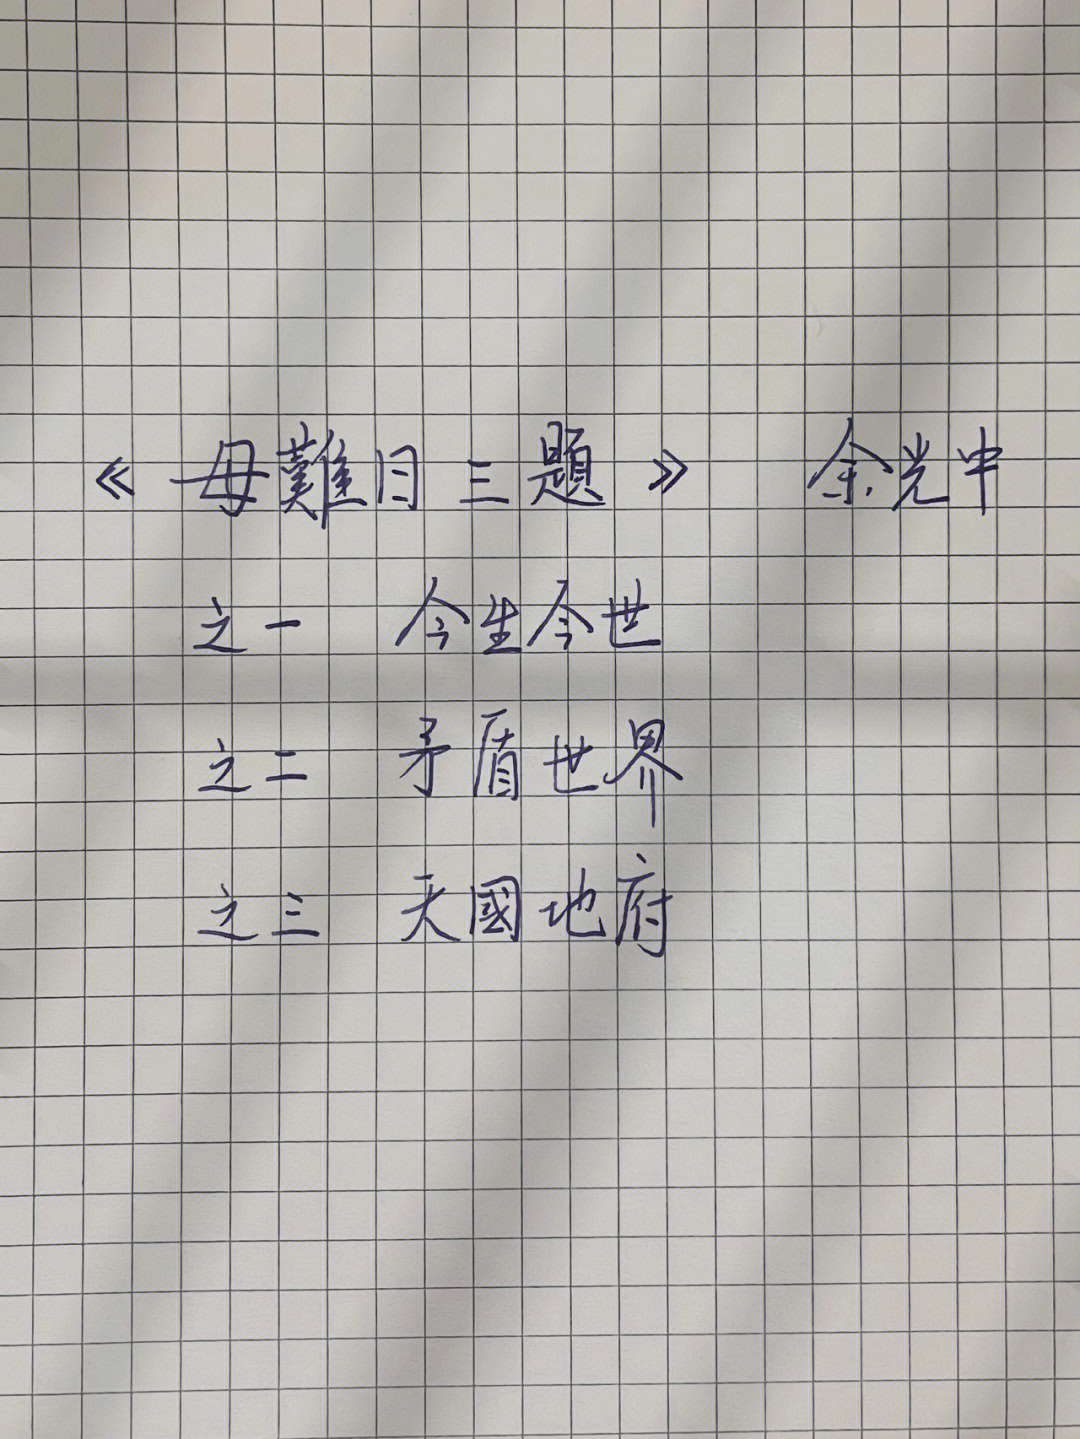 《母難日三題》 余光中
之一 今生今世
之二 矛盾世界
之三 天國地府